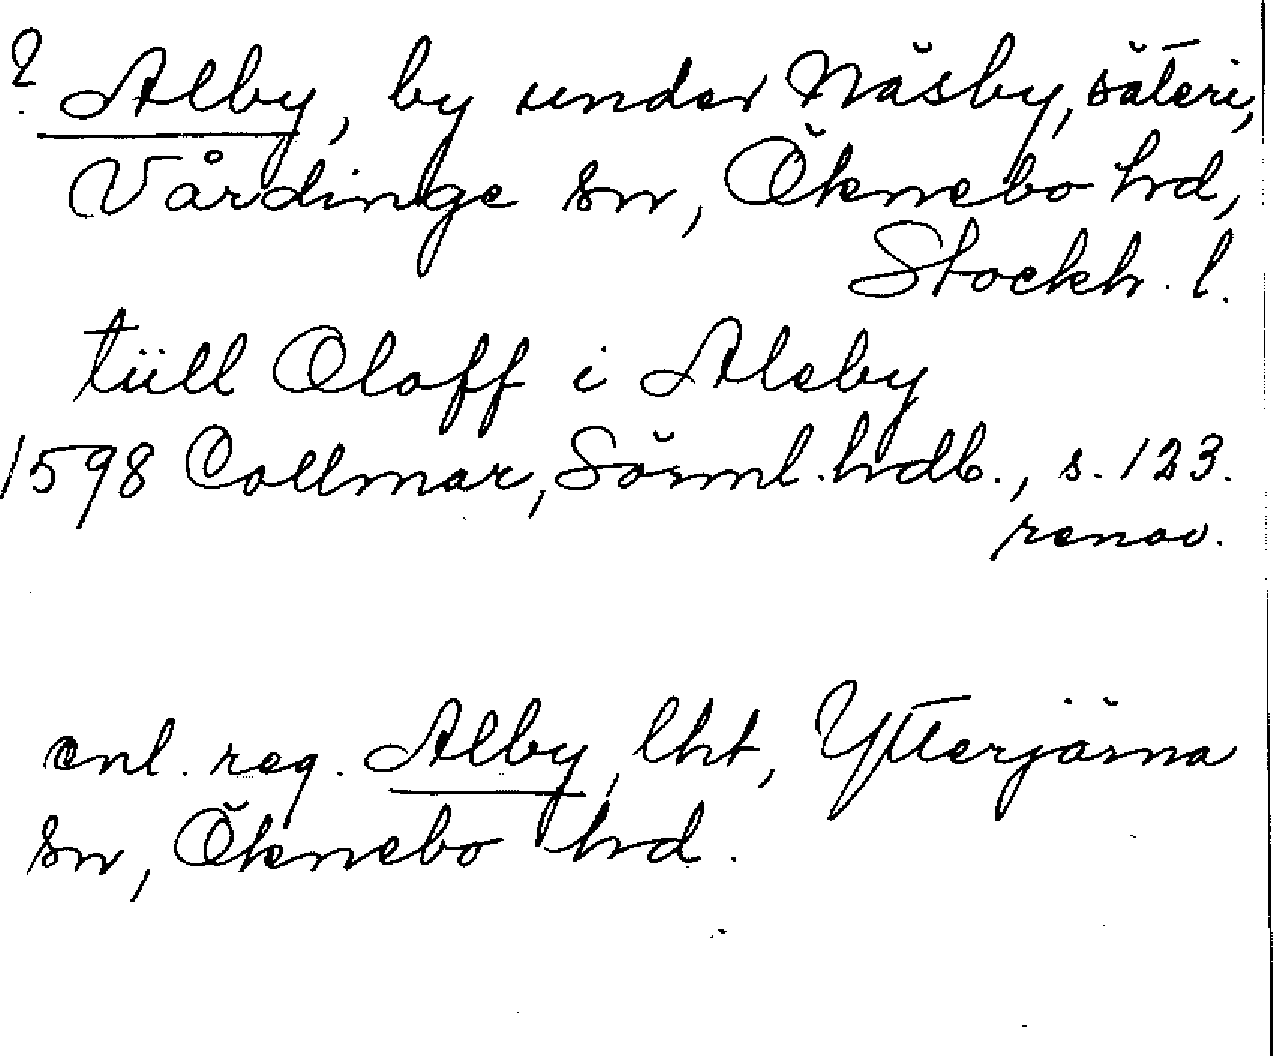 ? Alby, by under Näsby, säteri,
Vårdinge sn, Öknebo hd,
Stockh. l.
tiill Oloff i Aleby
1598 Collmar, Sörml. hdb., s. 123.
renov.
enl. reg. Alby, lht, Ytterjärna
sn, Öknebo hd.